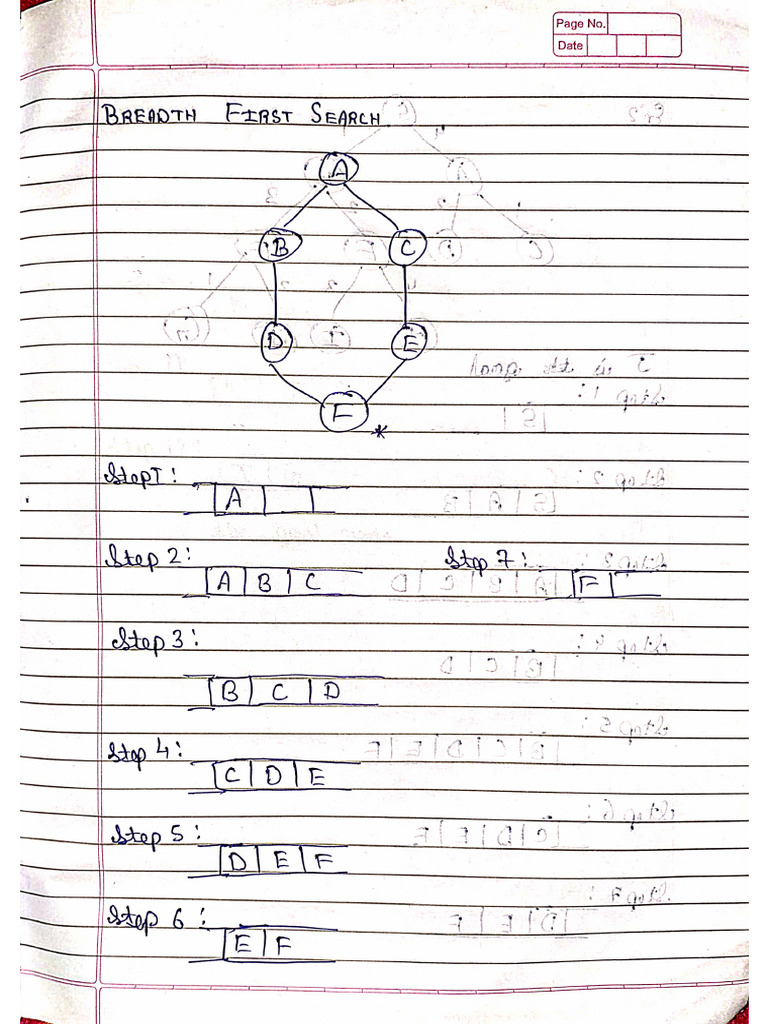 Page No.
Date
BREADTH FIRST SEARCH
A
B C
D E
F
*
Step 1:
A
Step 2:
A B C
Step 3:
B C D
Step 4:
C D E
Step 5:
D E F
Step 6:
E F
Step 7:
F